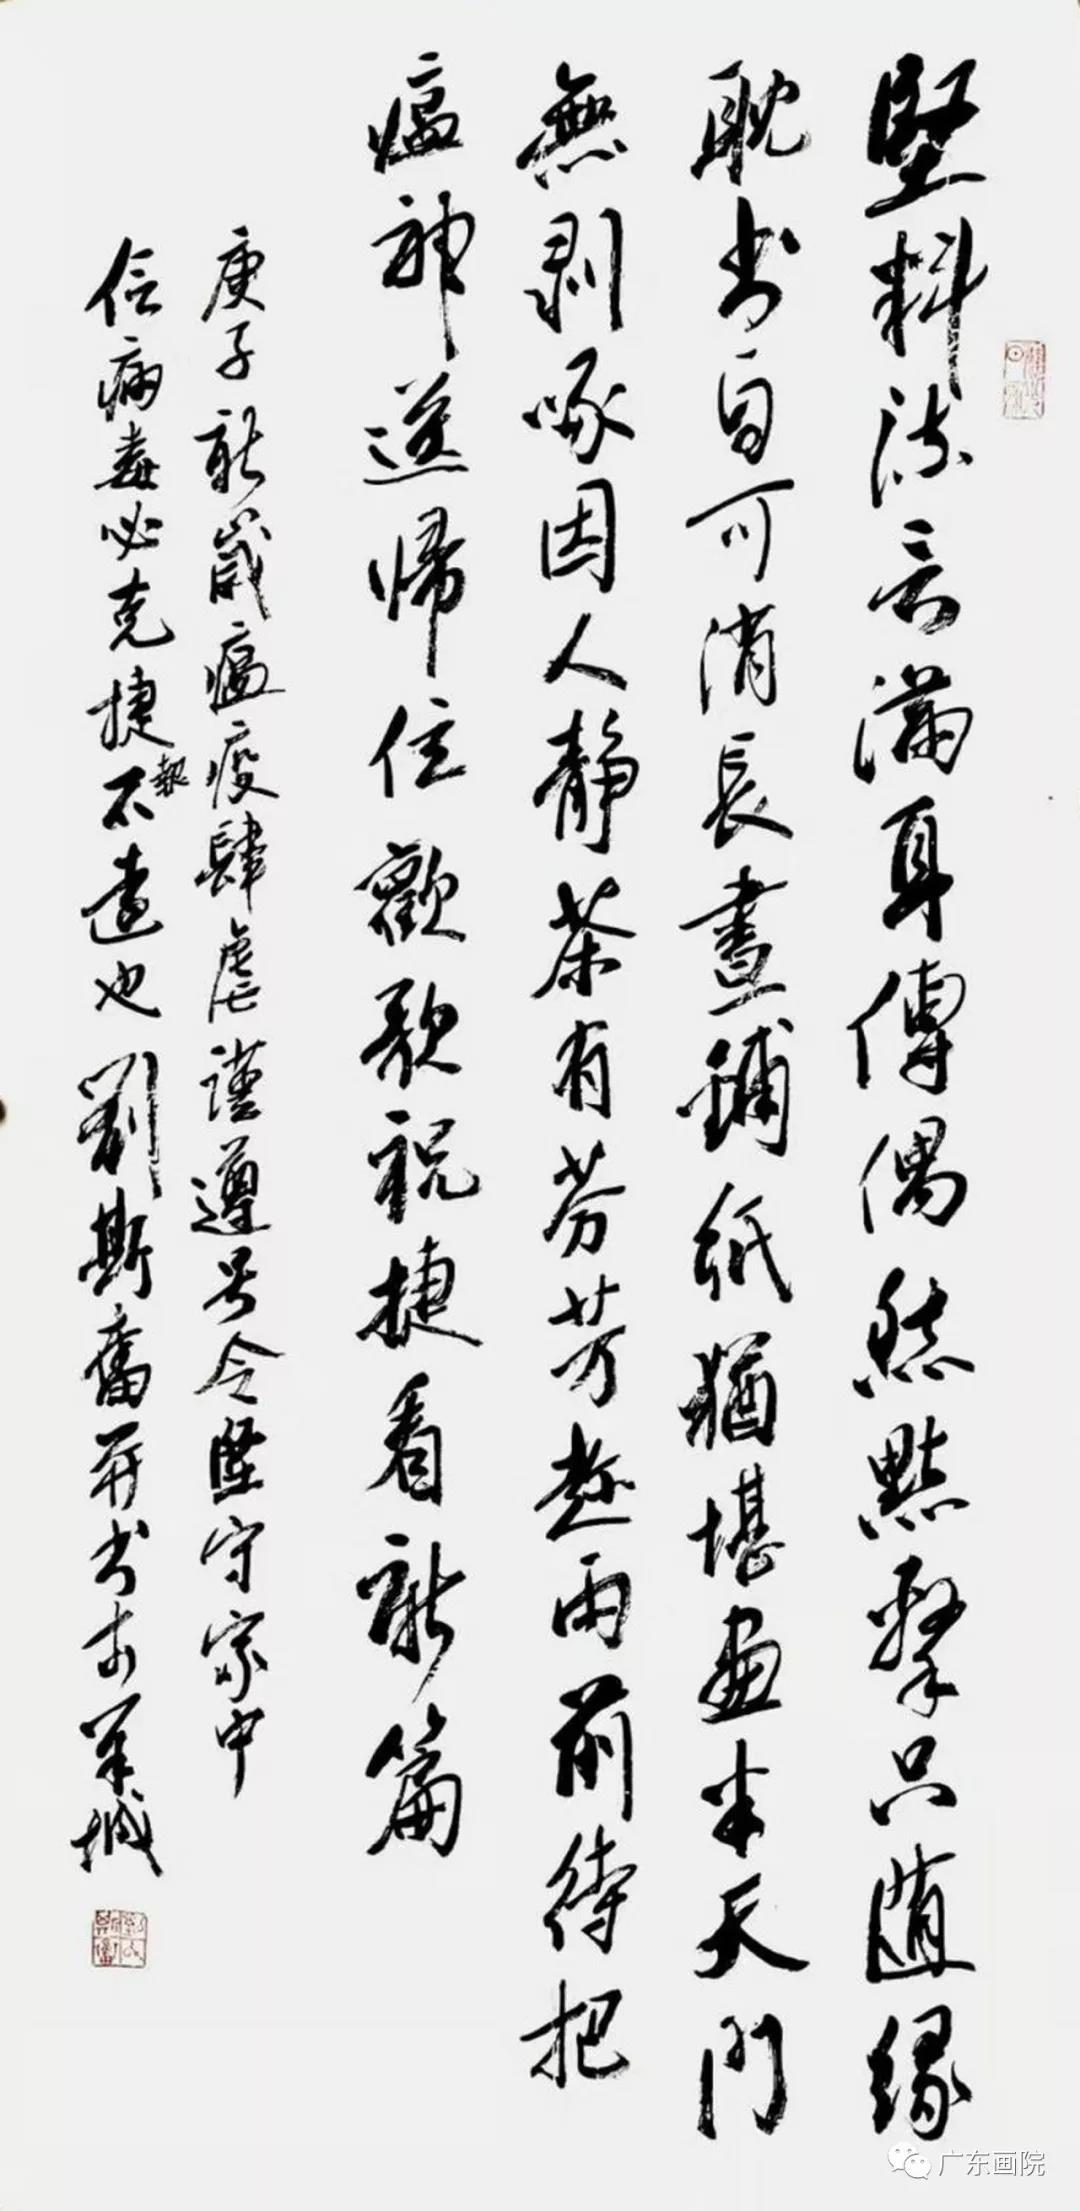 堅料流言滿耳傳偶然點擊只隨緣
耽书自可消長晝鋪紙猶堪畫半天門
無剥啄因人靜茶有芬芳趁雨前待把
瘟神送歸住歡歌祝捷看新篇
庚子新歲瘟疫肆虐謹遵号令堅守家中
信病毒必克捷報不遠也 劉斯奮并书于羊城
广东画院